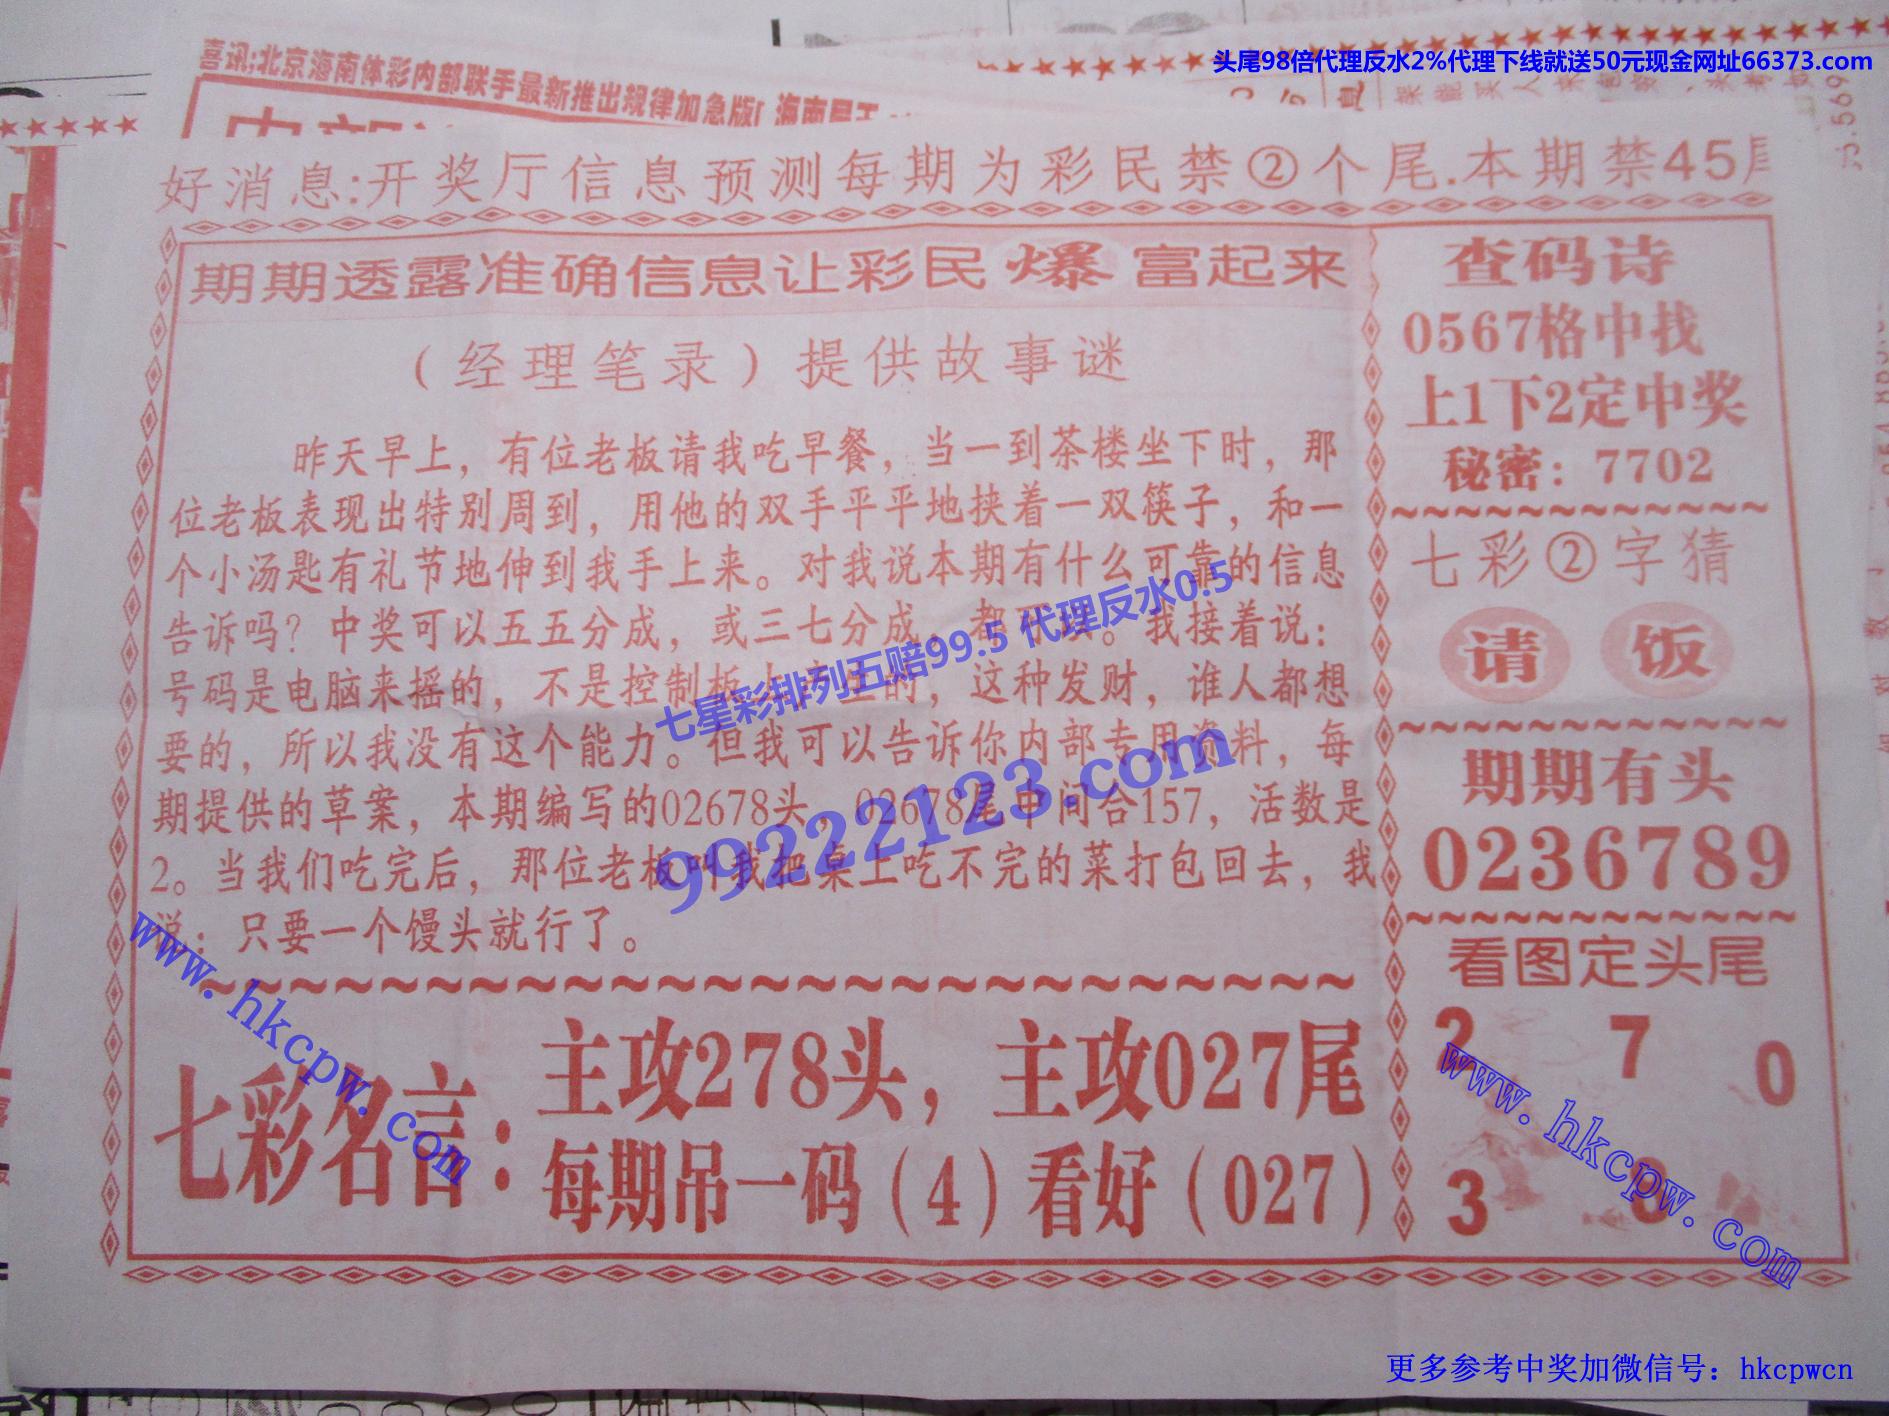 头尾98倍代理反水2%代理下线就送50元现金网址66373.com
喜讯;北京海南体彩内部联手最新推出规律加急版
好消息:开奖厅信息预测每期为彩民禁②个尾.本期禁45尾
期期透露准确信息让彩民爆富起来
(经理笔录)提供故事谜
昨天早上，有位老板请我吃早餐，当一到茶楼坐下时，那
位老板表现出特别周到，用他的双手平平地挟着一双筷子，和一
个小汤匙有礼节地伸到我手上来。对我说本期有什么可靠的信息
告诉吗？中奖可以五五分成，或三七分成，都可以。我接着说：
号码是电脑来摇的，不是控制板上产生的，这种发财，谁人都想
要的，所以我没有这个能力。但我可以告诉你内部专用资料，每
期提供的草案，本期编写的02678头，02678尾中间合157，活数是
2。当我们吃完后，那位老板叫我把桌上吃不完的菜打包回去，我
说：只要一个馒头就行了。
七彩名言：
主攻278头，主攻027尾
每期吊一码(4)看好(027)
查码诗
0567格中找
上1下2定中奖
秘密：7702
七彩②字猜
请 饭
期期有头
0236789
看图定头尾
2 7 0
3 8
七星彩排列五赔99.5 代理反水0.5
99222123.com
www.hkcpw.com
www.hkcpw.com
更多参考中奖加微信号：hkcpwcn